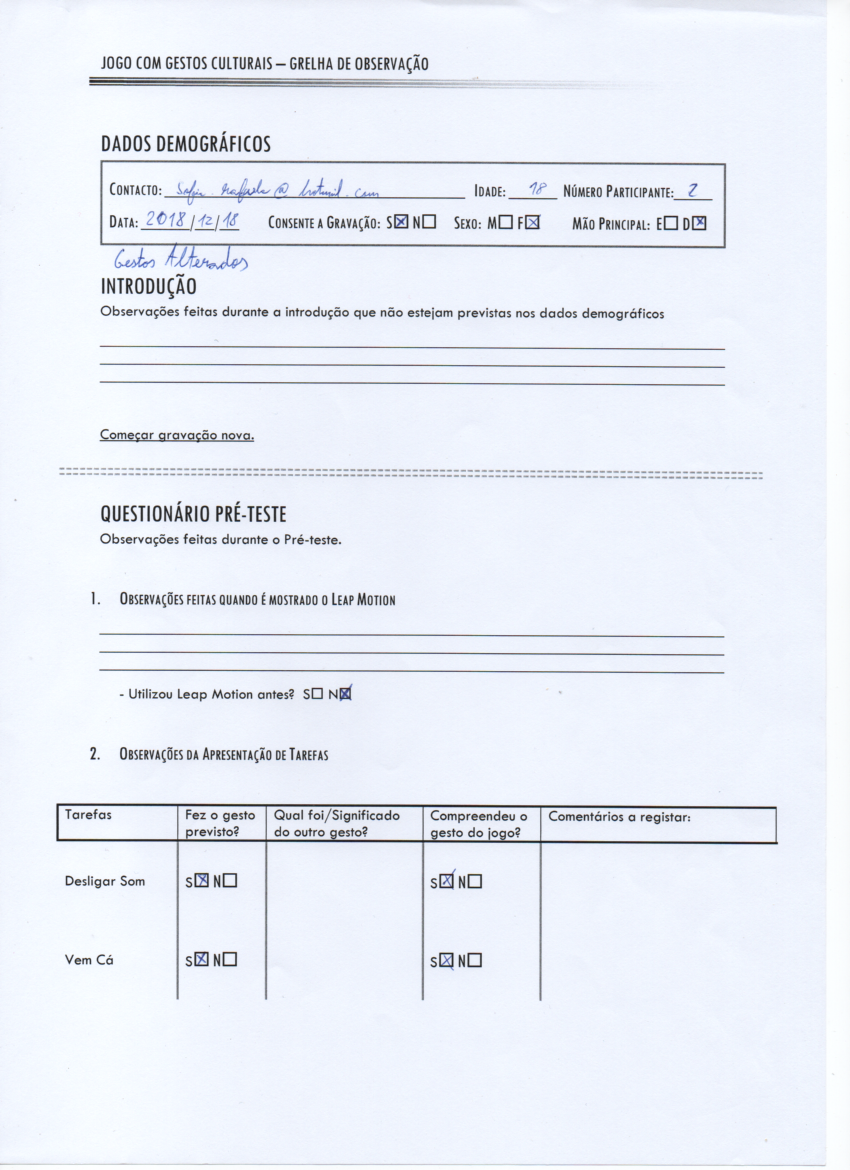 JOGO COM GESTOS CULTURAIS – GRELHA DE OBSERVAÇÃO
DADOS DEMOGRÁFICOS
CONTACTO: rafaela@hotmail.com IDADE: 18 NÚMERO PARTICIPANTE: 2
DATA: 2018/12/18 CONSENTE A GRAVAÇÃO: S☒ N☐ SEXO: M☐ F☒ MÃO PRINCIPAL: E☐ D☒
Gestos Alterados
INTRODUÇÃO
Observações feitas durante a introdução que não estejam previstas nos dados demográficos
Começar gravação nova.
QUESTIONÁRIO PRÉ-TESTE
Observações feitas durante o Pré-teste.
1. OBSERVAÇÕES FEITAS QUANDO É MOSTRADO O LEAP MOTION
- Utilizou Leap Motion antes? S☐ N☒
2. OBSERVAÇÕES DA APRESENTAÇÃO DE TAREFAS
Tarefas Fez o gesto previsto? Qual foi/Significado do outro gesto? Compreendeu o gesto do jogo? Comentários a registar:
Desligar Som S☒ N☐ S☒ N☐
Vem Cá S☒ N☐ S☒ N☐